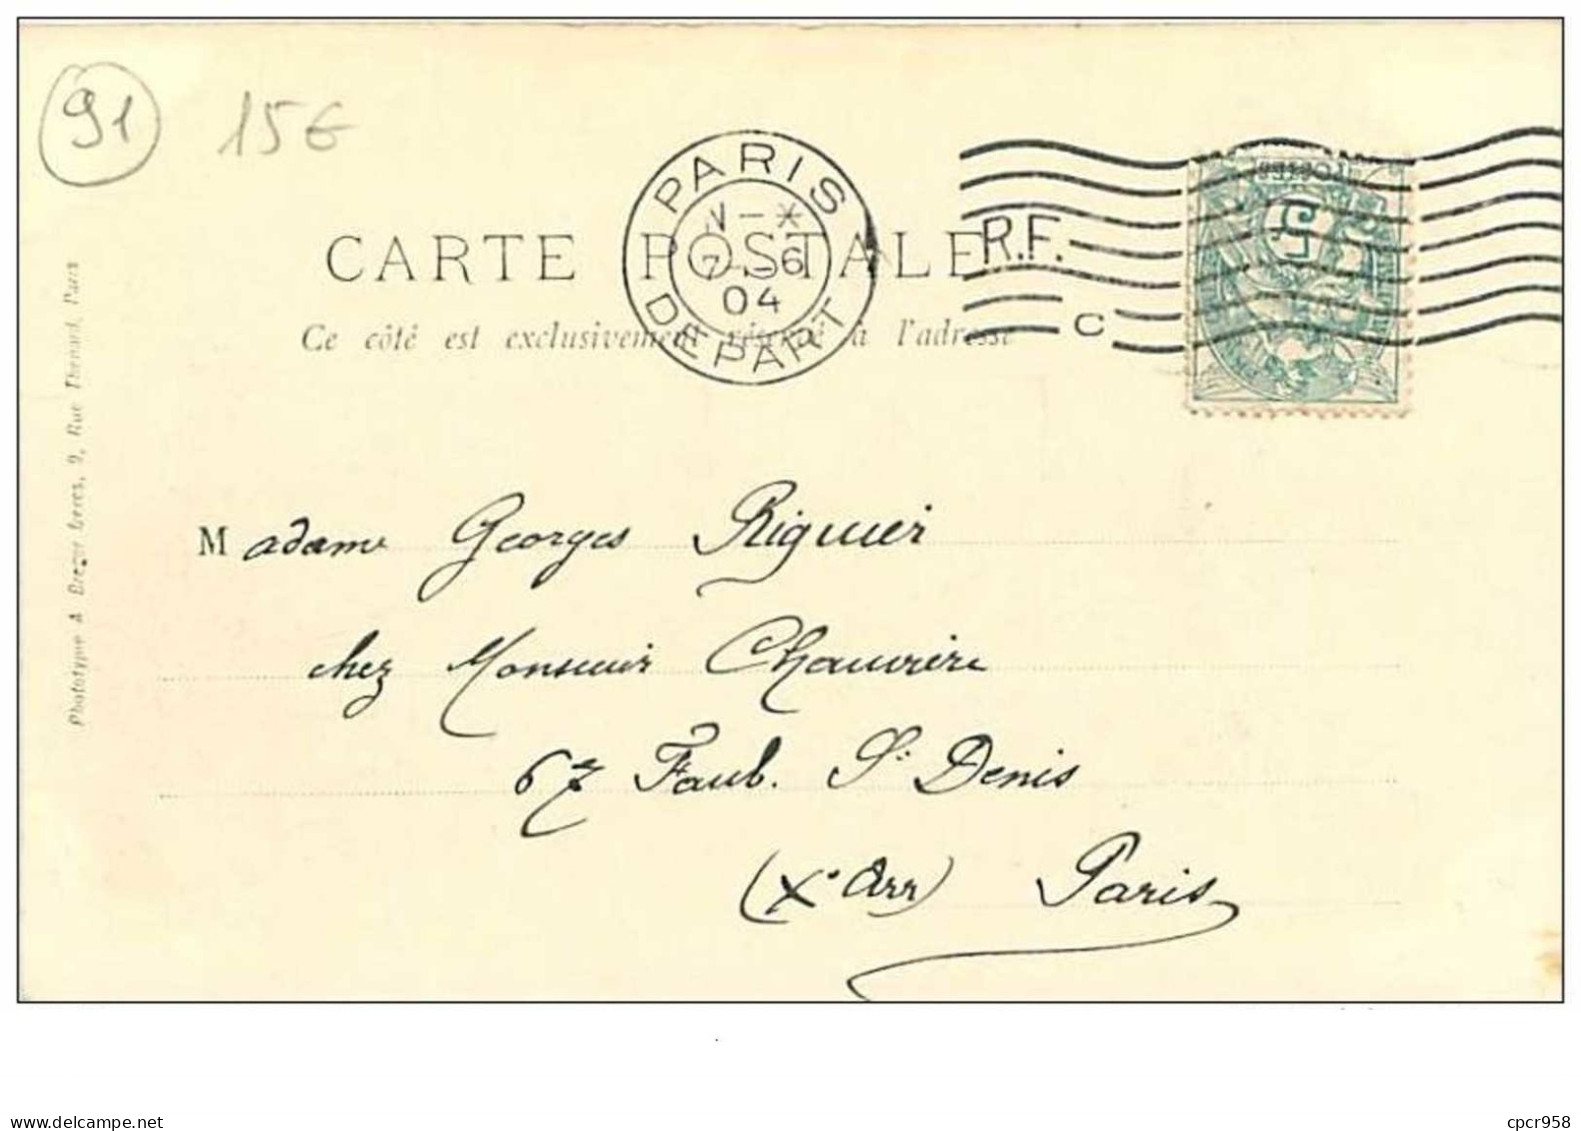 91 15€
PARIS
7 - 6
04
DEPART
R.F.
C
POSTES
5
CARTE POSTALE
Ce côté est exclusivement réservé à l'adresse
Phototypie A Bergeret frères, 9, Rue Thenard, Paris
Madame Georges Riguier
chez Monsieur Chauvière
67 Faub. St Denis
(Xe Arr) Paris
www.delcampe.net
cpcr958